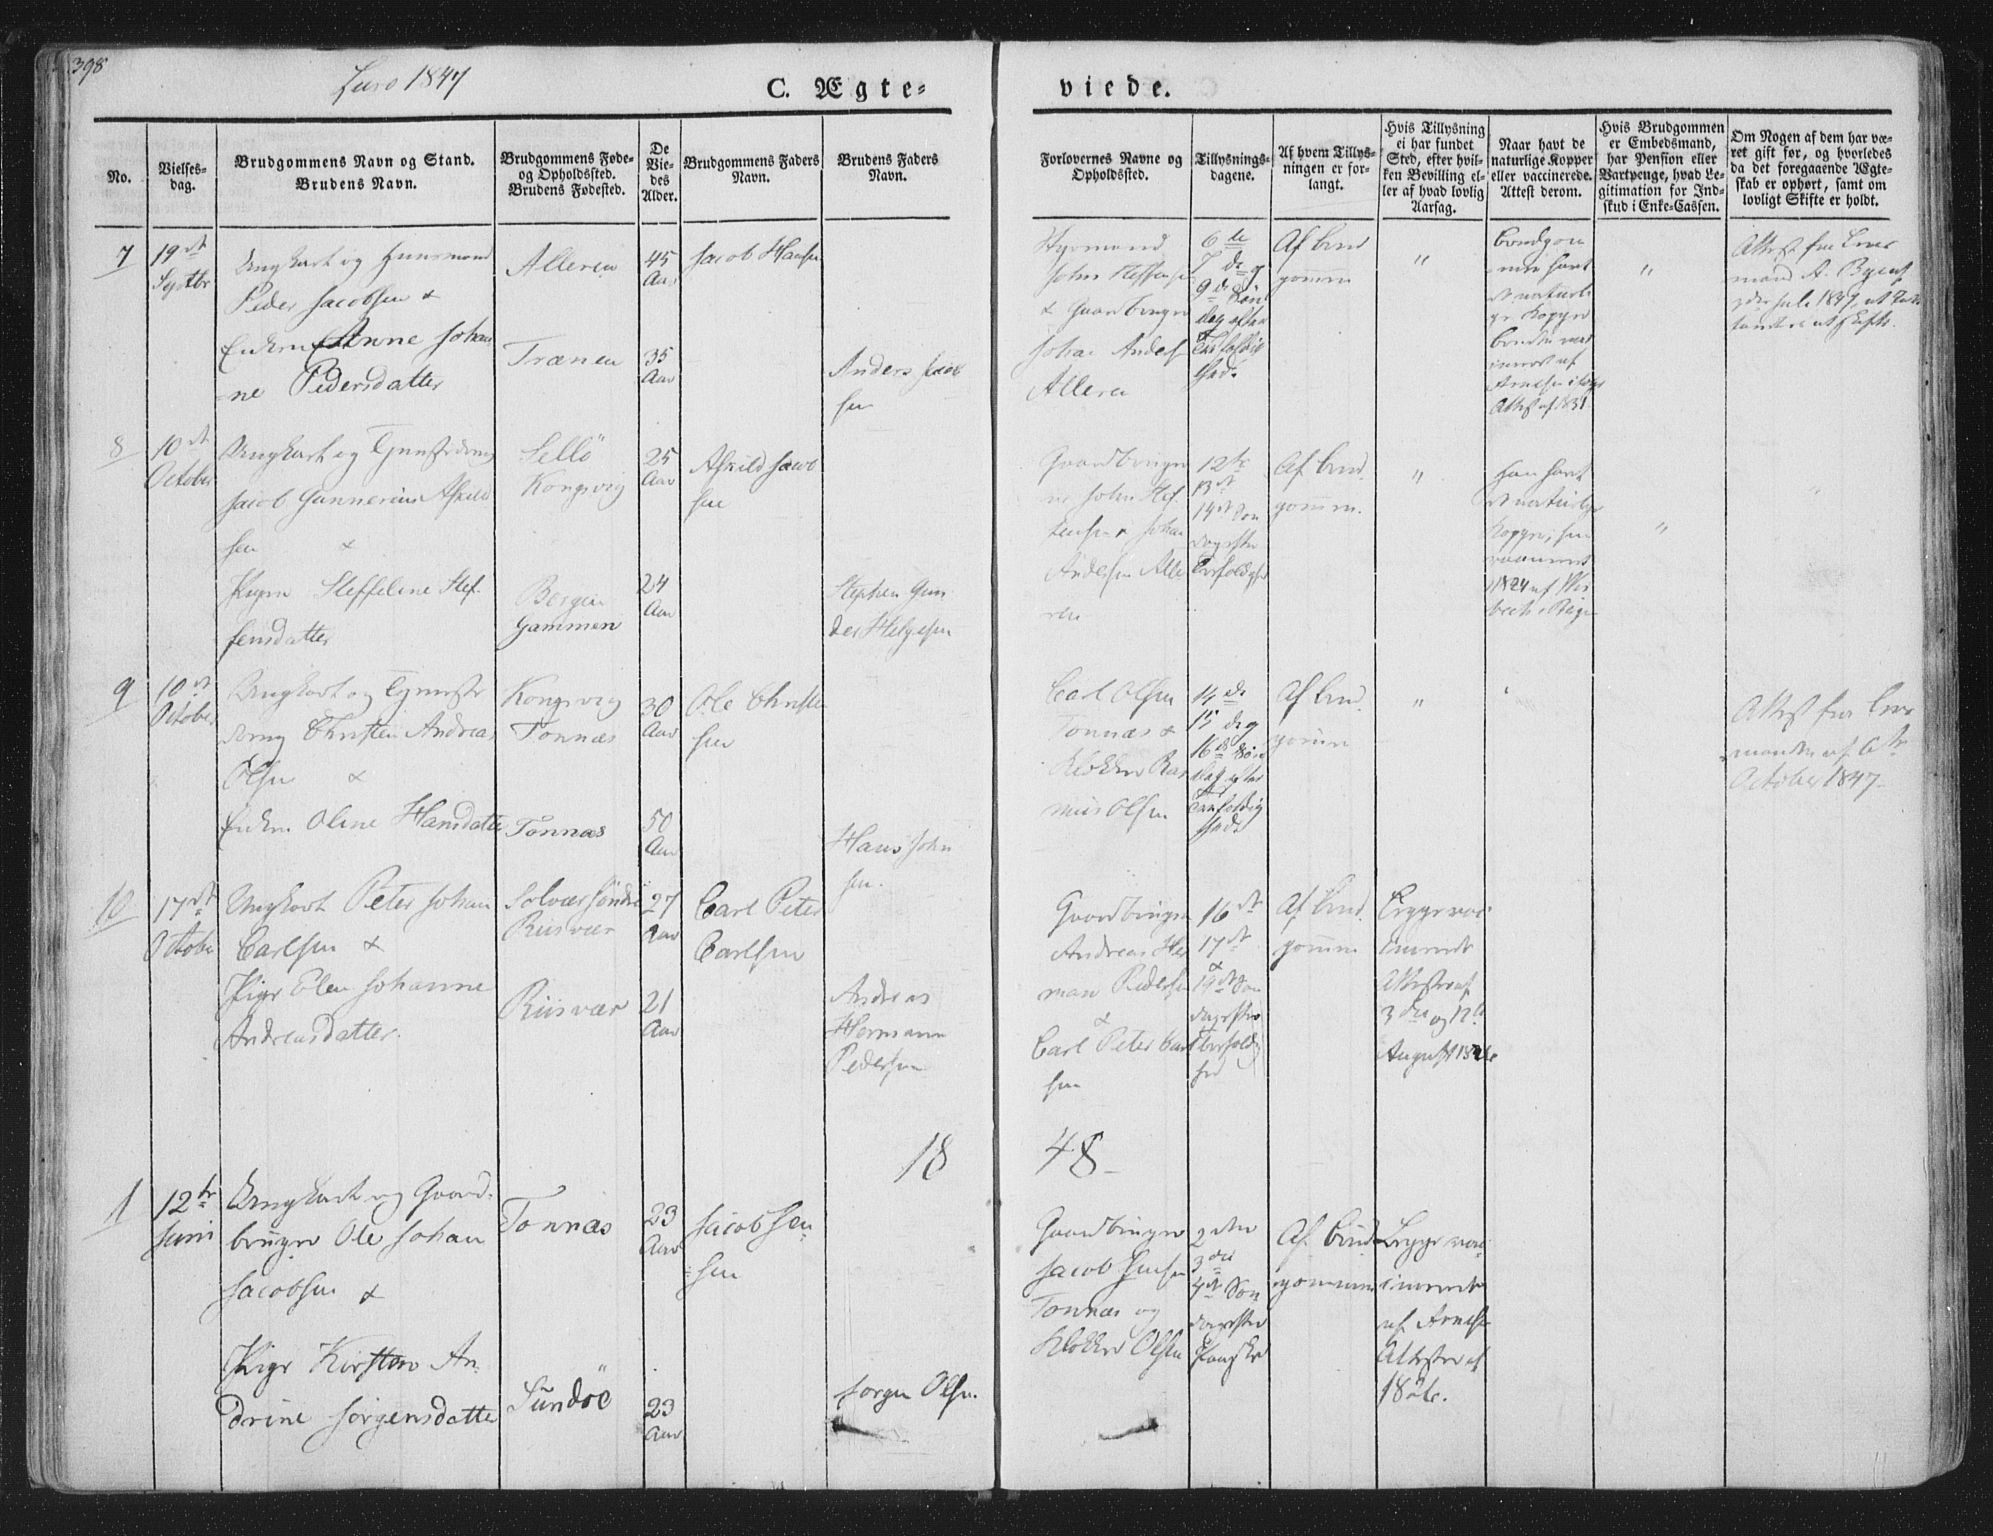 398
Lurö 1847
C. Ægte-
viede.
No.
Vielses-
dag.
Brudgommens Navn og Stand.
Brudens Navn.
Brudgommens Føde-
og Opholdssted.
Brudens Fødested.
De
Vie-
des
Alder.
Brudgommens Faders
Navn.
Brudens Faders
Navn.
Forlovernes Navne og
Opholdssted.
Tillysnings-
dagene.
Af hvem Tillys-
ningen er for-
langt.
Hvis Tillysning
ei har fundet
Sted, efter hvil-
ken Bevilling el-
ler af hvad lovlig
Aarsag.
Naar havt de
naturlige Kopper
eller vaccinerede.
Attest derom.
Hvis Brudgommen
er Embedsmand,
har Pension eller
Vartpenge, hvad Le-
gitimation for Ind-
skud i Enke-Cassen.
Om Nogen af dem har væ-
ret gift før, og hvorledes
da det foregaaende Ægte-
skab er ophørt, samt om
lovligt Skifte er holdt.
7
19de
Septbr
Ungkarl og Huusmand
Peder Jacobsen &
Enken Anne Johan
ne Pedersdatter
Alleren
Trænen
45
Aar
35
Aar
Jacob Hansen
Anders Jacob
sen
Styrmand
John Steffensen
& Gaardbruger
Johan Anders
Alleren
6te
7de og
9de Søn
dag efter
Trefoldig
hed.
Af brud
gommen
"
Brudgom
men havt
de naturli
ge Kopper
Bruden vac
cineret af
Attest af 1831
"
Attest fra
8
10de
October
Ungkarl og Tjenestedreng
Jacob Gunnerius Askild
sen &
Pigen Steffeline Stef
fensdatter
Sellö
Kongsvig
Borgen
Gammen
25
Aar
24
Aar
Askild Jacob
sen
Stephen Gun
der Helgesen
Gaardbruger
ne John Stef
fensen & Johan
Andersen Alle
ren
12te
13de
14de Søn
dag efter
Trefoldighed
Af brud
gommen.
"
han havt
de naturlige
Kopper, hun
vaccineret
1824 af
"
9
10de
October
Ungkarl og Tjeneste
dreng Christen Andreas
Olsen &
Enken Oline Hansdatter
Kongsvig
Tonnæs
Tonnæs
30
Aar
50
Aar
Ole Christen
sen
Hans John
sen.
Carl Olsen
Tonnæs &
Klokker Ras
mus Olsen
14de
15de og
16de Søn
dag efter
Trefoldig
hed
Af brud
gommen
"
Attest fra
October 1847
10
17de
October
Ungkarl Peter Johan
Carlsen &
Pige Elen Johanne
Andreasdatter.
Solværsöndre
Riisvær
Riisvær
27
Aar
21
Aar
Carl Peter
Carlsen
Andreas
Hermann
Pedersen
Gaardbruger
Andreas Her
man Pedersen
&
Carl Peter Carl
sen
16de
17de
&
19de Søn
dag efter
Trefoldig
hed
Af brud
gommen
Begge vac
cinerede
Attester af
3die og 12te
August
1848
1
12te
Juni
Ungkarl og Gaard-
bruger Ole Johan
Jacobsen &
Pige Kirsten An
drine Jörgensdatter
Tonnæs
Sundöe
23
Aar
23
Aar
Jacob Jen
sen
Jørgen Olsen.
Gaardbruger
Jacob Jensen
Tonnæs og
Klokker Olsen
2den
3die
4de Søn
dag efter
Paaske
Af brud
gommen
Begge vac
cinerede
af
Attester af